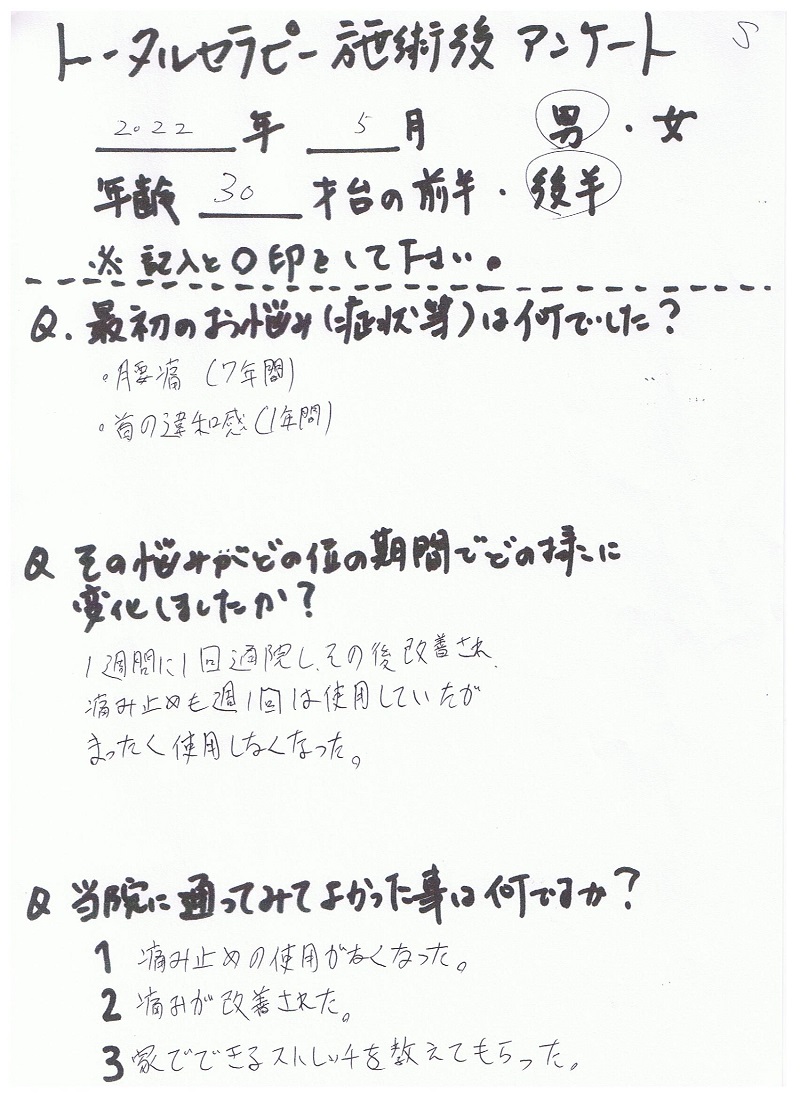 トータルセラピー施術後 アンケート S
2022 年 5 月 男・女
年齢 30 才台の前半・後半
※ 記入と〇印をして下さい。
Q. 最初のお悩み(症状等)は何でした?
・腰痛 (7年間)
・首の違和感(1年間)
Q その悩みがどの位の期間でどの様に
変化しましたか?
1週間に1回通院し、その後改善され、
痛み止めも週1回は使用していたが
まったく使用しなくなった。
Q 当院に通ってみてよかった事は何ですか?
1 痛み止めの使用がなくなった。
2 痛みが改善された。
3 家でできるストレッチを教えてもらった。